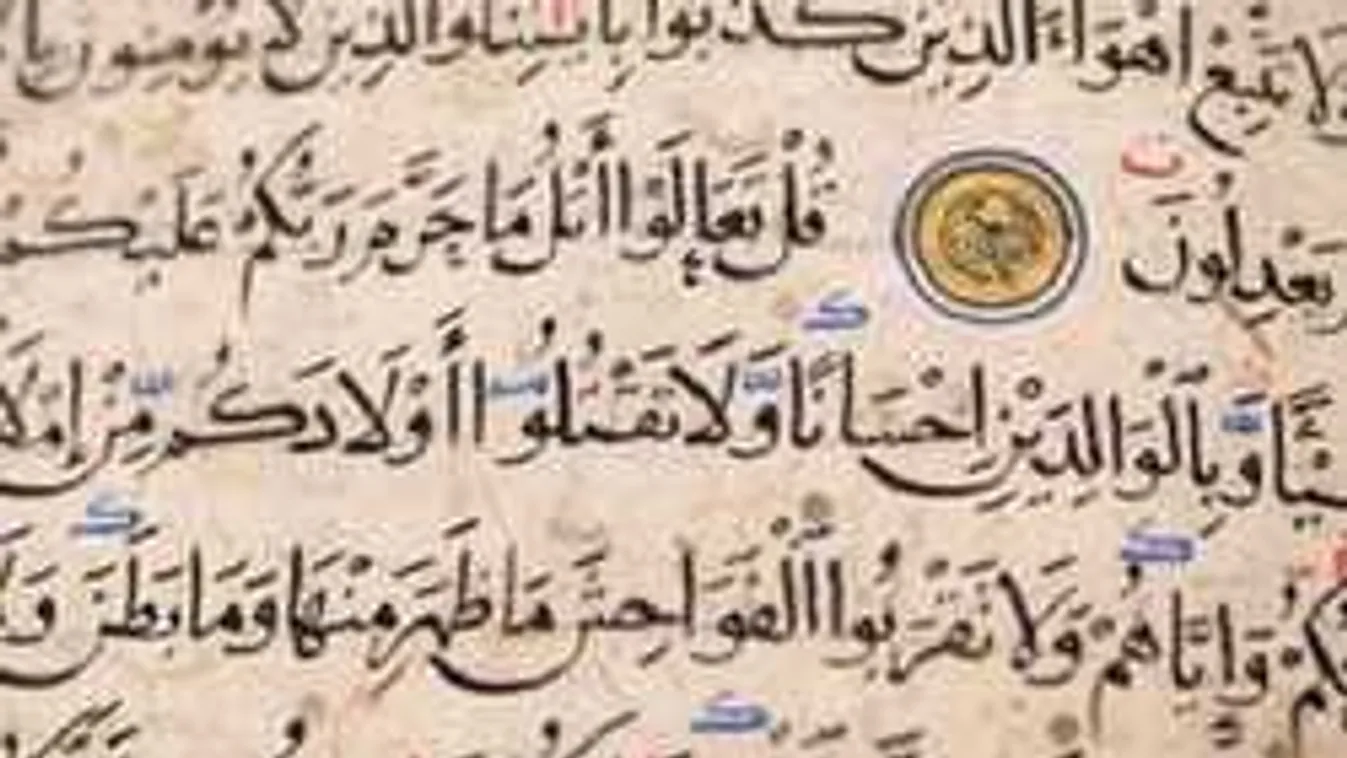 وَلَا تَتَّبِعْ أَهْوَاءَ الَّذِينَ كَذَّبُوا بِآيَاتِنَا وَالَّذِينَ لَا يُؤْمِنُونَ
يَعْدِلُونَ قُلْ تَعَالَوْا أَتْلُ مَا حَرَّمَ رَبُّكُمْ عَلَيْكُمْ
وَبِالْوَالِدَيْنِ إِحْسَانًا وَلَا تَقْتُلُوا أَوْلَادَكُمْ مِنْ
وَإِيَّاهُمْ وَلَا تَقْرَبُوا الْفَوَاحِشَ مَا ظَهَرَ مِنْهَا وَمَا بَطَنَ